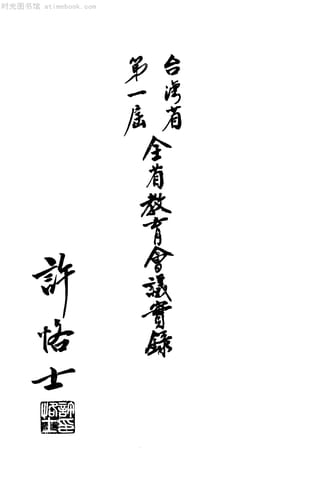 时光图书馆 atimebook.com
台灣省
第一屆
全省教育會議實錄
許恪士
許恪士印